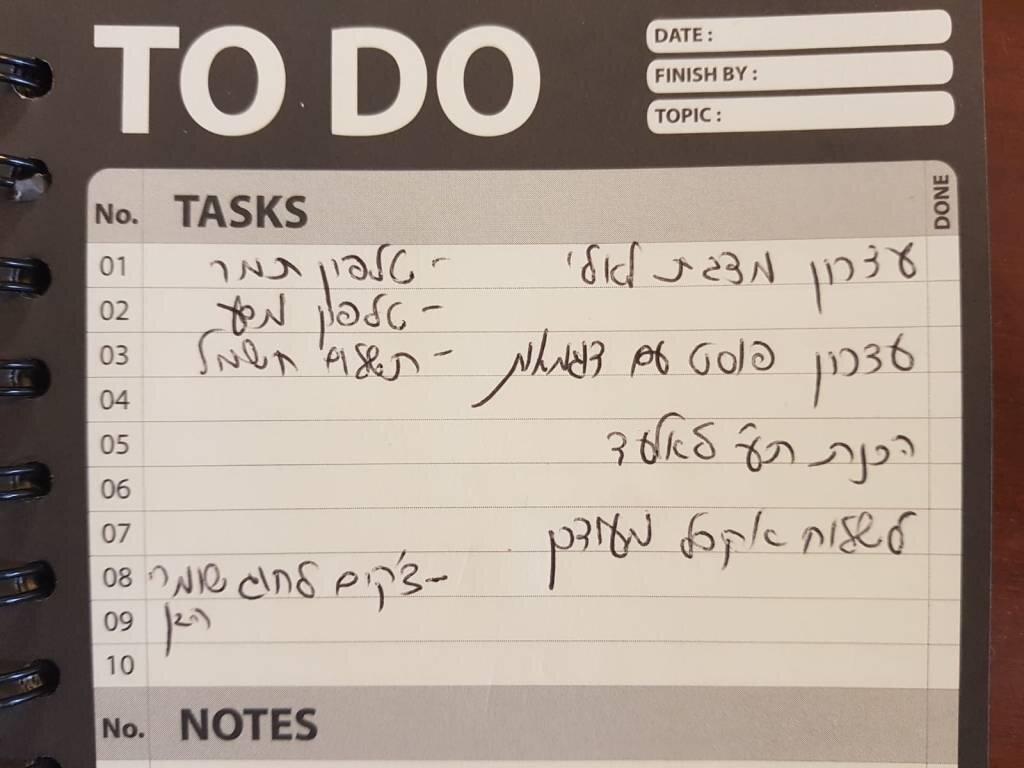 TO DO
DATE :
FINISH BY :
TOPIC :
No. TASKS DONE
01 עדכון מצגת לאלי - טלפון תמר
02 - טלפון
03 עדכון פוסט עם דוגמאות - תשלום חשמל
04
05 הכנת לאלעד
06
07 לשלוח אקסל מעודכן
08 - צ'קים לחוג שומרי
09 הגן
10
No. NOTES